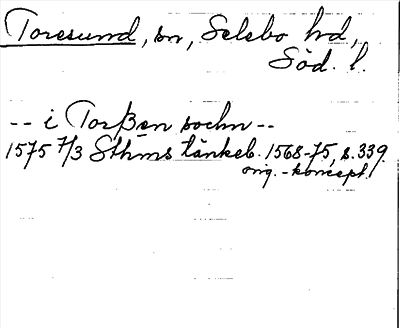 Toresund, sn, Selebo hd,
Söd. l.
-- i Torßen sochn --
1575 7/3 Sthms tänkeb. 1568-75, s. 339.
orig.-koncept.